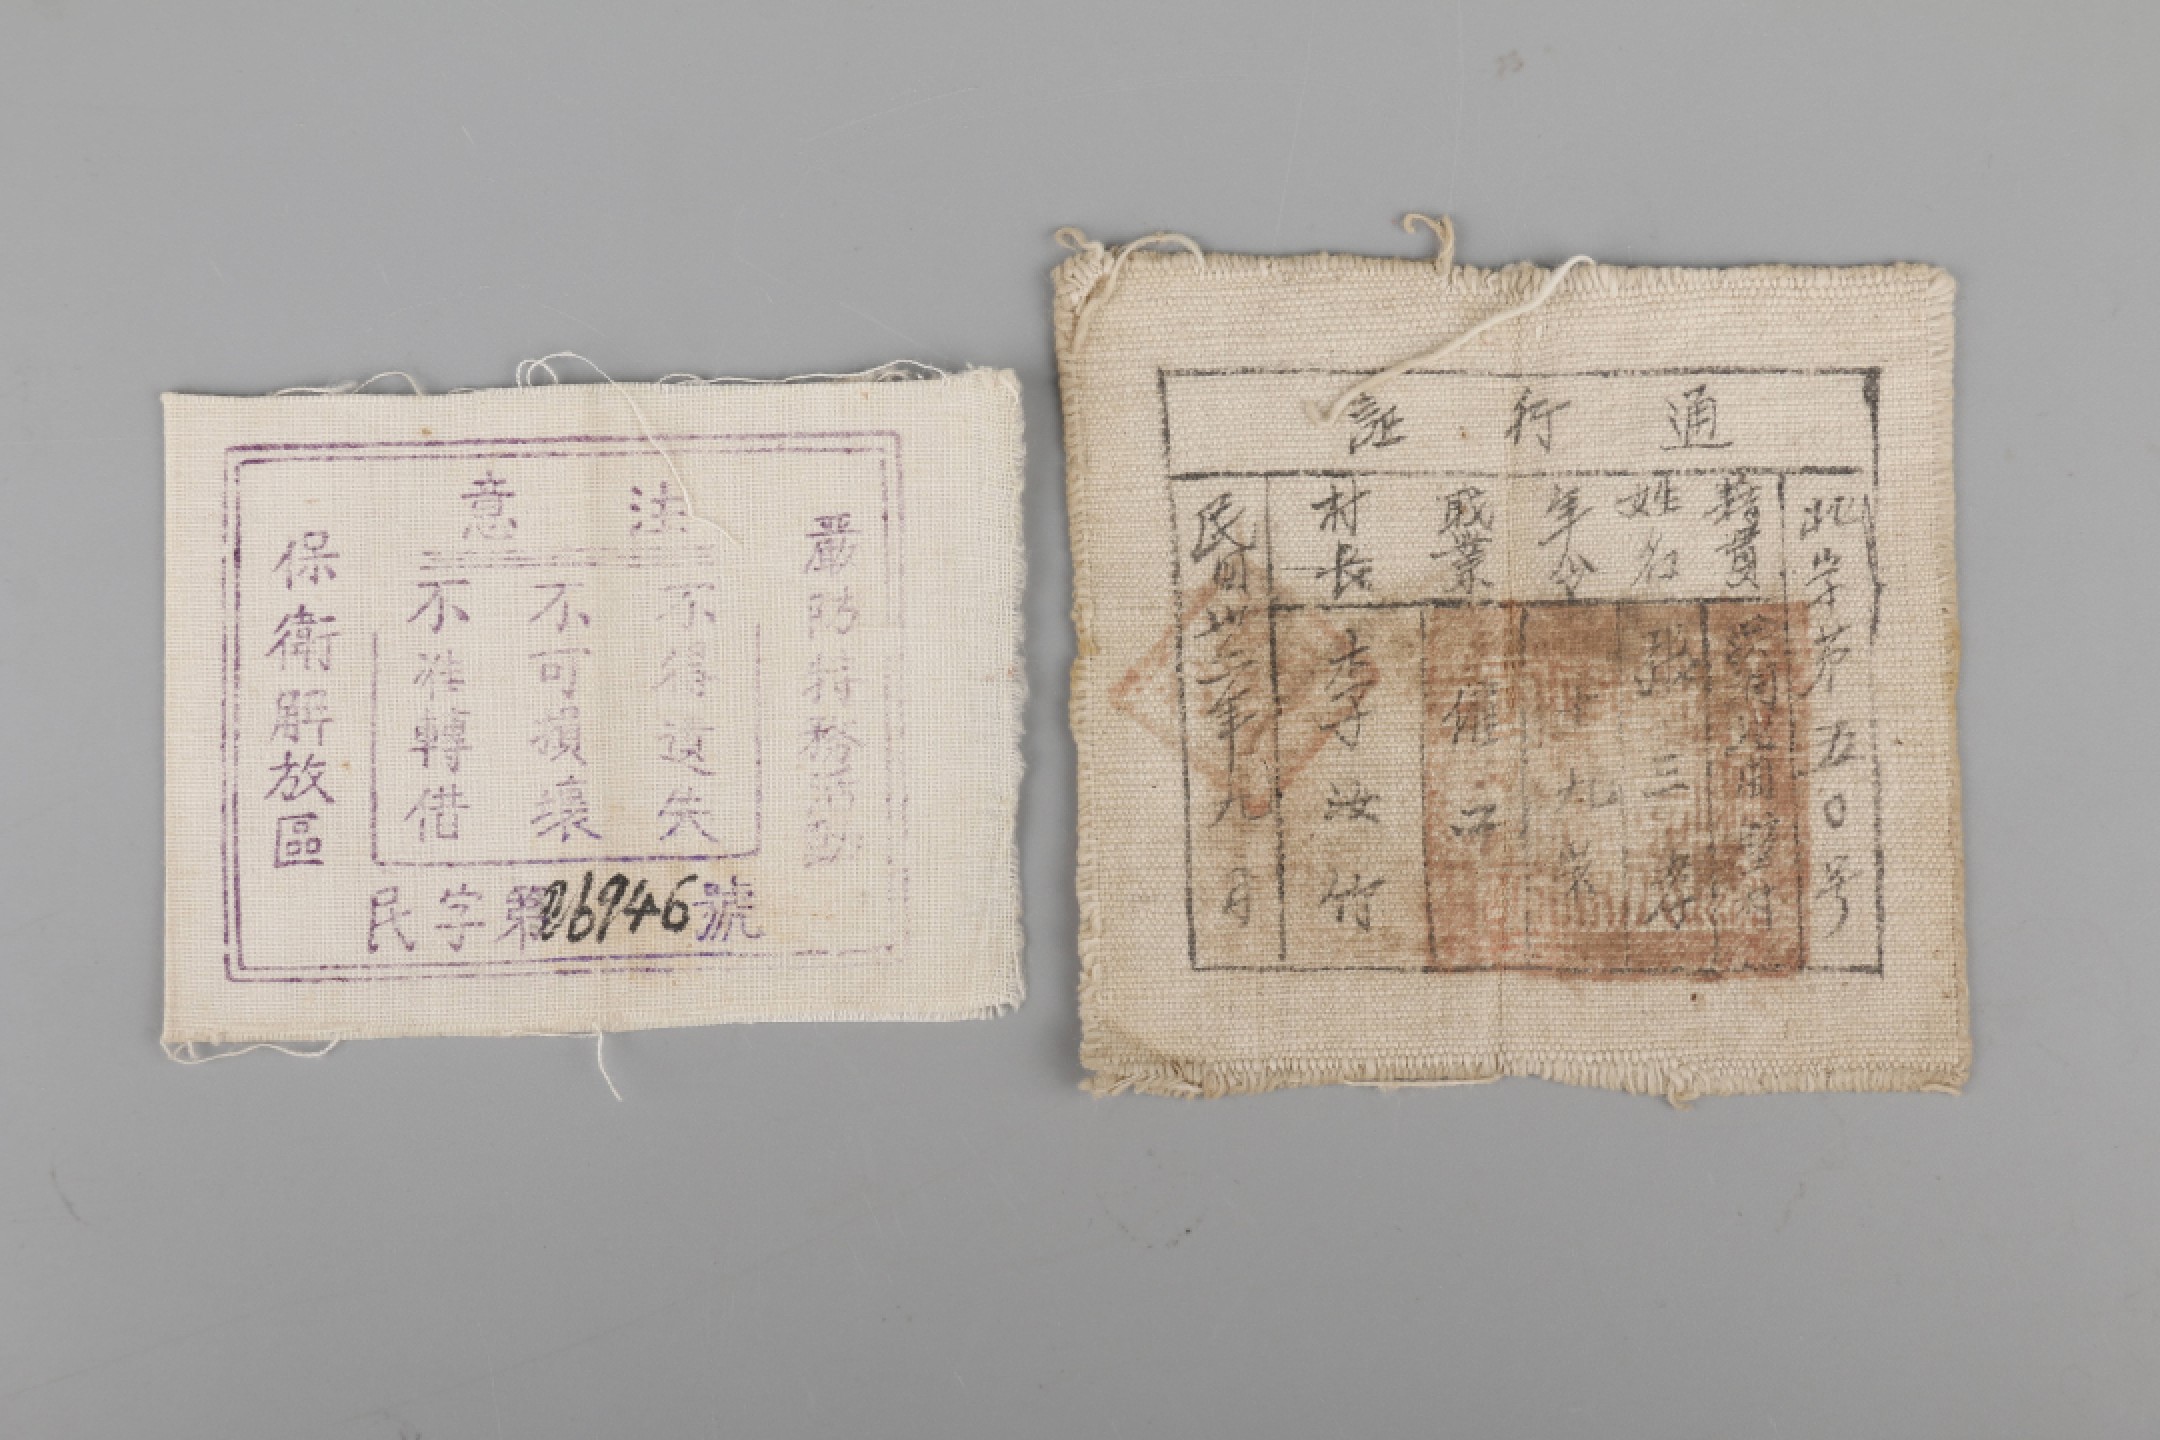 注意
嚴防特務活動
不得遺失
不可損壞
不准轉借
保衛解放區
民字第26946號
通行証
此字第五〇号
籍貫
姓名 張三孝
年令 十九岁
職業
村長 李汝竹
民国卅三年九月